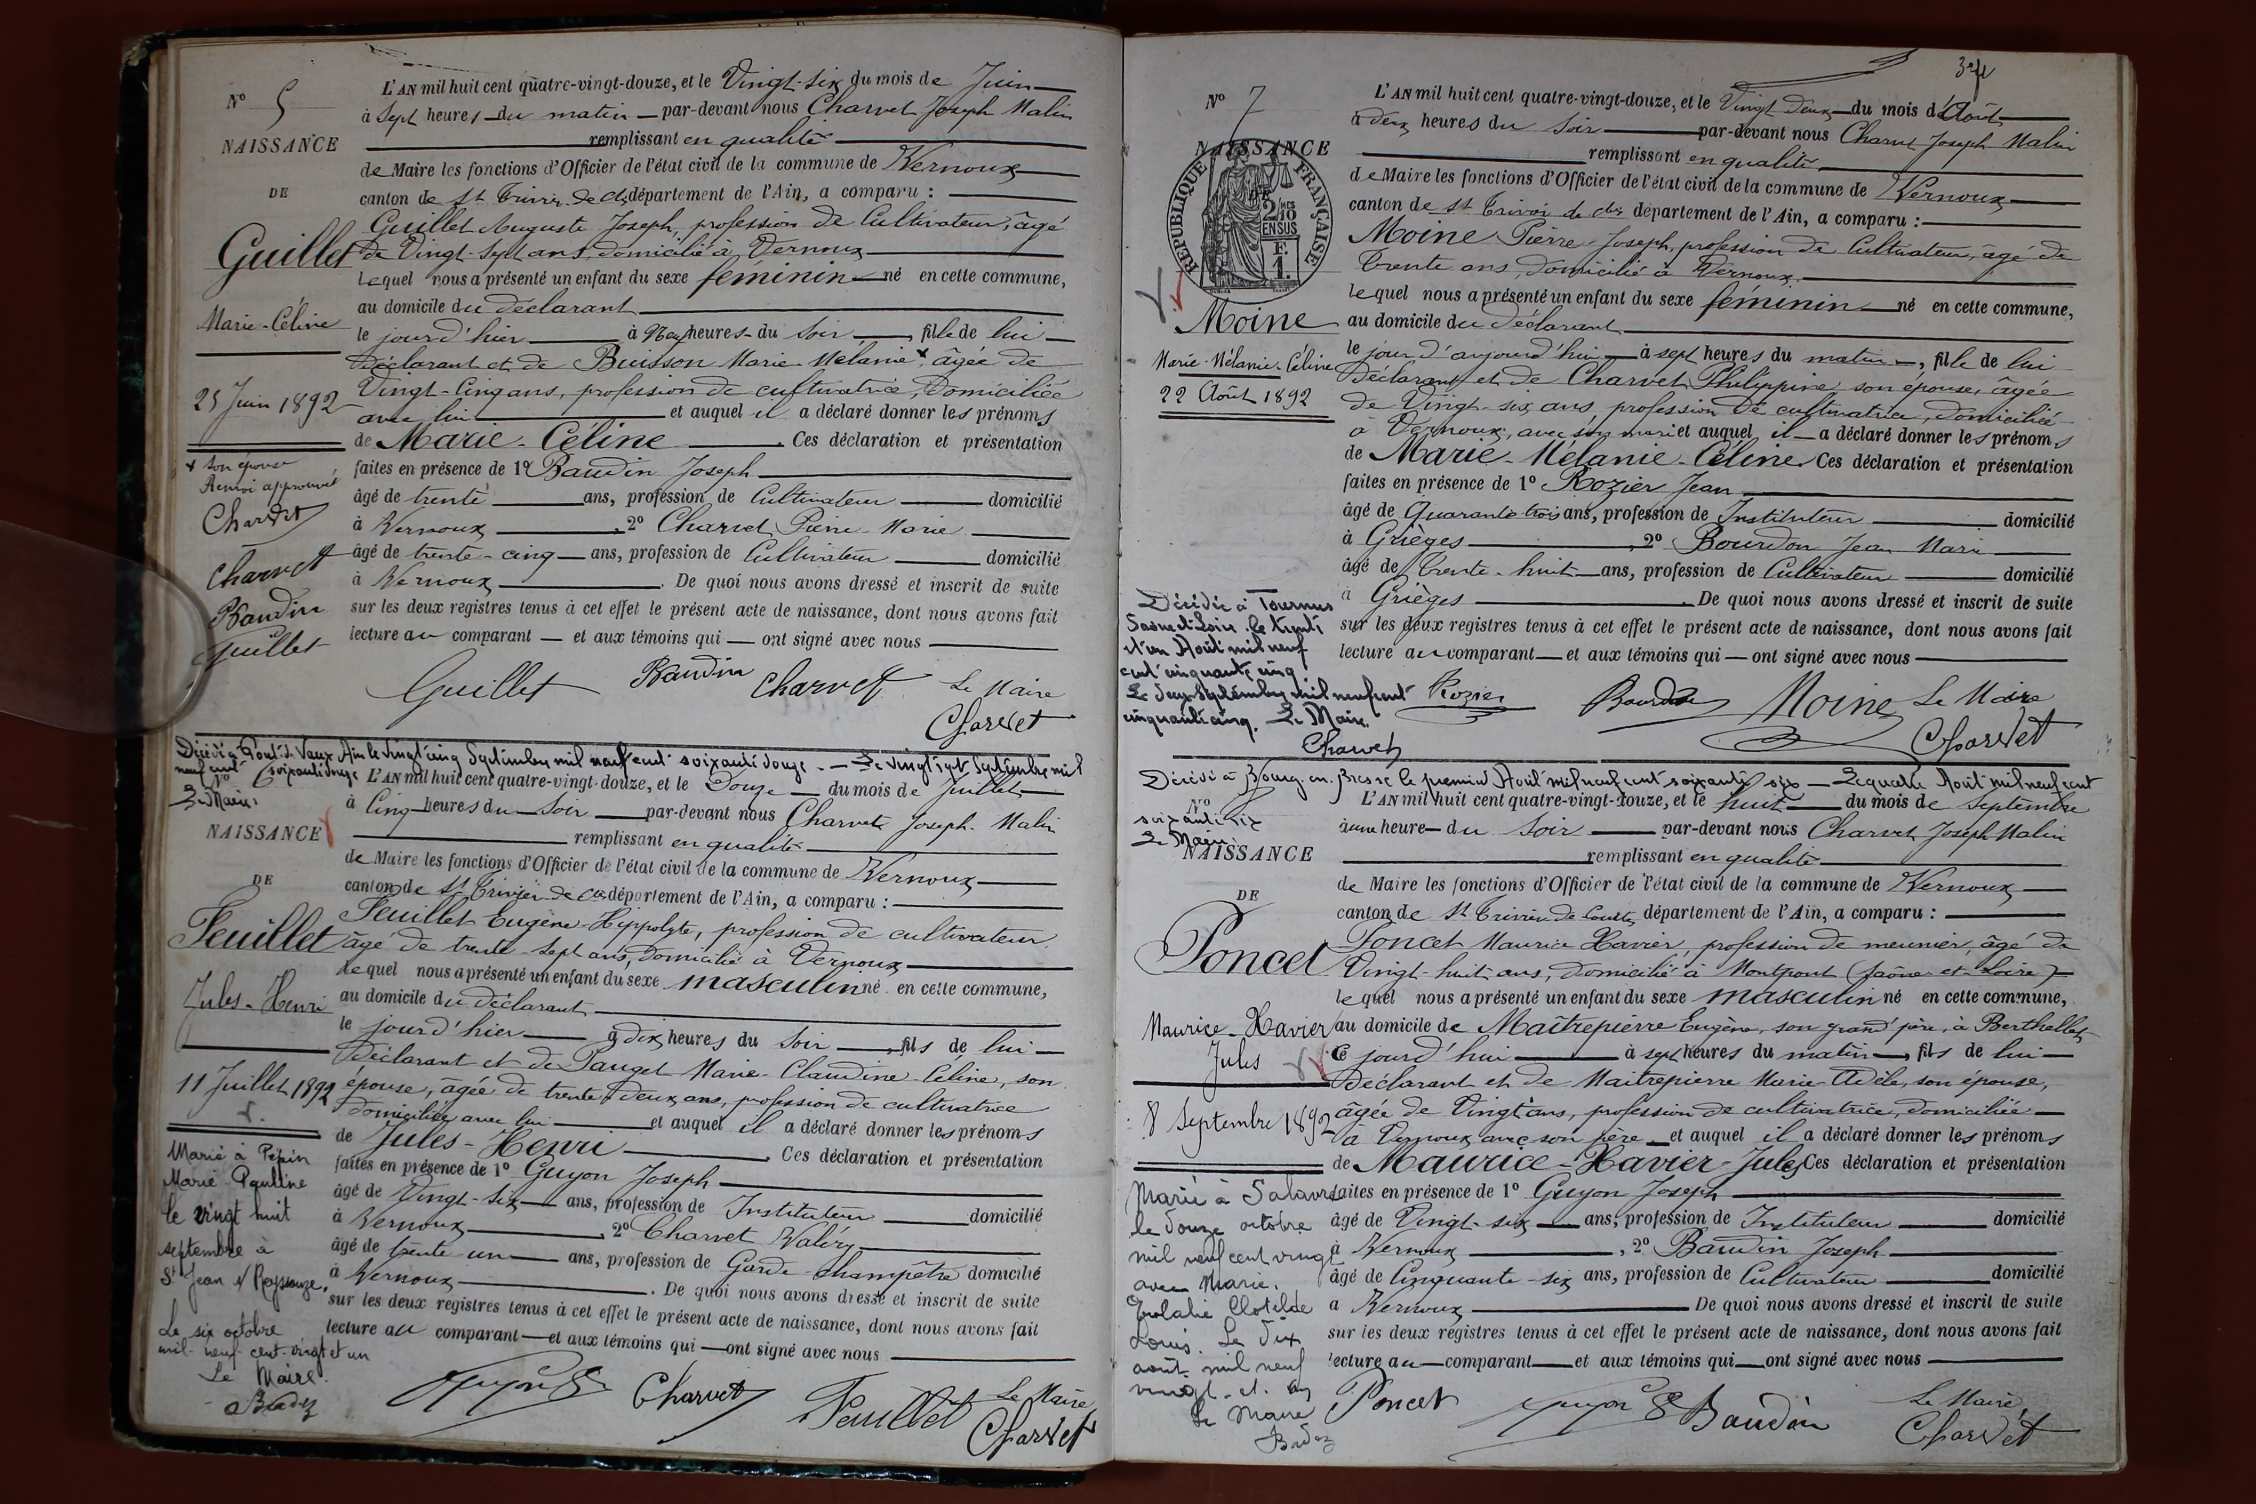 N° 5
NAISSANCE
DE
Guillet
Marie-Céline
25 Juin 1892
L'AN mil huit cent quatre-vingt-douze, et le Vingt-six du mois de Juin
à Sept heures du matin par-devant nous Charvet Joseph Malin
remplissant en qualité
de Maire les fonctions d'Officier de l'état civil de la commune de Vernoux
canton de St Trivier de Cts département de l'Ain, a comparu :
Guillet Auguste Joseph, profession de Cultivateur, âgé
de Vingt-Sept ans, domicilié à Vernoux
Lequel nous a présenté un enfant du sexe féminin né en cette commune,
au domicile du déclarant
le jour d'hier à Neuf heures du Soir, fille de lui
déclarant et de Buisson Marie Mélanie x âgée de
Vingt-Cinq ans, profession de cultivatrice, domiciliée
avec lui et auquel il a déclaré donner les prénoms
de Marie-Céline. Ces déclaration et présentation
faites en présence de 1° Baudin Joseph
âgé de trente ans, profession de Cultivateur domicilié
à Vernoux, 2° Charvet Pierre Marie
âgé de trente-cinq ans, profession de Cultivateur domicilié
à Vernoux. De quoi nous avons dressé et inscrit de suite
sur les deux registres tenus à cet effet le présent acte de naissance, dont nous avons fait
lecture au comparant et aux témoins qui ont signé avec nous
x son épouse
Renvoi approuvé
Charvet
Charvet
Baudin
Guillet
Guillet Baudin Charvet Le Maire
Charvet
Décédé à Pont-de-Vaux Ain le vingt cinq Septembre mil neuf cent soixante douze. — Le vingt sept Septembre mil
neuf cent soixante douze
Le Maire
N° 6
NAISSANCE
DE
Feuillet
Jules-Henri
11 Juillet 1892
L'AN mil huit cent quatre-vingt-douze, et le Douze du mois de Juillet
à Cinq heures du Soir par-devant nous Charvet Joseph Malin
remplissant en qualité
de Maire les fonctions d'Officier de l'état civil de la commune de Vernoux
canton de St Trivier de Cts département de l'Ain, a comparu :
Feuillet Eugène-Hippolyte, profession de cultivateur
âgé de trente-sept ans, domicilié à Vernoux
lequel nous a présenté un enfant du sexe masculin né en cette commune,
au domicile du déclarant
le jour d'hier à dix heures du Soir, fils de lui
déclarant et de Pauget Marie-Claudine-Céline, son
épouse, âgée de trente deux ans, profession de cultivatrice
domiciliée avec lui et auquel il a déclaré donner les prénoms
de Jules-Henri. Ces déclaration et présentation
faites en présence de 1° Guyon Joseph
âgé de Vingt-six ans, profession de Instituteur domicilié
à Vernoux, 2° Charvet Valéry
âgé de trente un ans, profession de Garde-champêtre domicilié
à Vernoux. De quoi nous avons dressé et inscrit de suite
sur les deux registres tenus à cet effet le présent acte de naissance, dont nous avons fait
lecture au comparant et aux témoins qui ont signé avec nous
Marié à Pépin
Marie Pauline
le vingt huit
septembre à
St Jean s/ Reyssouze,
Le six octobre
mil-neuf-cent-vingt et un
Le Maire
Guyon Charvet Feuillet Le Maire
Charvet
N° 7
NAISSANCE
RÉPUBLIQUE FRANÇAISE
2/10 EN SUS
Moine
Marie-Mélanie-Céline
22 Août 1892
L'AN mil huit cent quatre-vingt-douze, et le Vingt deux du mois d'Août
à deux heures du Soir par-devant nous Charvet Joseph Malin
remplissant en qualité
de Maire les fonctions d'Officier de l'état civil de la commune de Vernoux
canton de St Trivier de Cts département de l'Ain, a comparu :
Moine Pierre-Joseph, profession de Cultivateur, âgé de
trente ans, domicilié à Vernoux
lequel nous a présenté un enfant du sexe féminin né en cette commune,
au domicile du déclarant
le jour d'aujourd'hui à sept heures du matin, fille de lui
déclarant et de Charvet Philippine son épouse, âgée
de Vingt-six ans, profession de cultivatrice, domiciliée
à Vernoux, avec son mari et auquel il a déclaré donner les prénoms
de Marie-Mélanie-Céline. Ces déclaration et présentation
faites en présence de 1° Rozier Jean
âgé de Quarante-trois ans, profession de Instituteur domicilié
à Grièges, 2° Bourdon Jean Marie
âgé de Trente-huit ans, profession de Cultivateur domicilié
à Grièges. De quoi nous avons dressé et inscrit de suite
sur les deux registres tenus à cet effet le présent acte de naissance, dont nous avons fait
lecture au comparant et aux témoins qui ont signé avec nous
Décédée à Tournus
Saone et Loire le trente
et un Août mil neuf
cent cinquante cinq
Le deux Septembre mil neuf cent
cinquante cinq. Le Maire
Charvet
Rozier Bourdon Moine Le Maire
Charvet
Décédé à Bourg-en-Bresse le premier Août mil neuf cent soixante six — Le quatre Août mil neuf cent
soixante six
Le Maire
N° 8
NAISSANCE
DE
Poncet
Maurice-Xavier
Jules
8 Septembre 1892
L'AN mil huit cent quatre-vingt-douze, et le huit du mois de Septembre
à une heure du Soir par-devant nous Charvet Joseph Malin
remplissant en qualité
de Maire les fonctions d'Officier de l'état civil de la commune de Vernoux
canton de St Trivier de Courtes département de l'Ain, a comparu :
Poncet Maurice Xavier, profession de meunier, âgé de
Vingt-huit ans, domicilié à Montpont (Saône-et-Loire)
lequel nous a présenté un enfant du sexe masculin né en cette commune,
au domicile de Maîtrepierre Eugène, son grand père, à Berthellet
ce jour d'hui à sept heures du matin, fils de lui
Déclarant et de Maitrepierre Marie-Adèle, son épouse,
âgée de Vingt ans, profession de cultivatrice, domiciliée
à Vernoux avec son père et auquel il a déclaré donner les prénoms
de Maurice-Xavier-Jules Ces déclaration et présentation
faites en présence de 1° Guyon Joseph
âgé de Vingt-six ans, profession de Instituteur domicilié
à Vernoux, 2° Baudin Joseph
âgé de Cinquante-six ans, profession de Cultivateur domicilié
à Vernoux De quoi nous avons dressé et inscrit de suite
sur les deux registres tenus à cet effet le présent acte de naissance, dont nous avons fait
lecture au comparant et aux témoins qui ont signé avec nous
Marié à Salavre
le douze octobre
mil neuf cent vingt
avec Marie
Eulalie Clotilde
Louis. Le dix
août mil neuf
vingt-et-un
Le Maire
Poncet Guyon Baudin Le Maire
Charvet